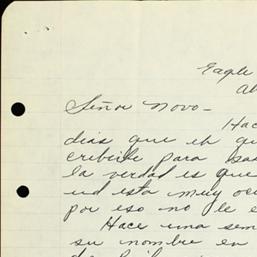 Eagle
Señor Novo-
Hac
dias que eh qu
cribirle para sa
la verdad es que
ud esta muy ocu
por eso no le e
Hace una sem
su nombre en